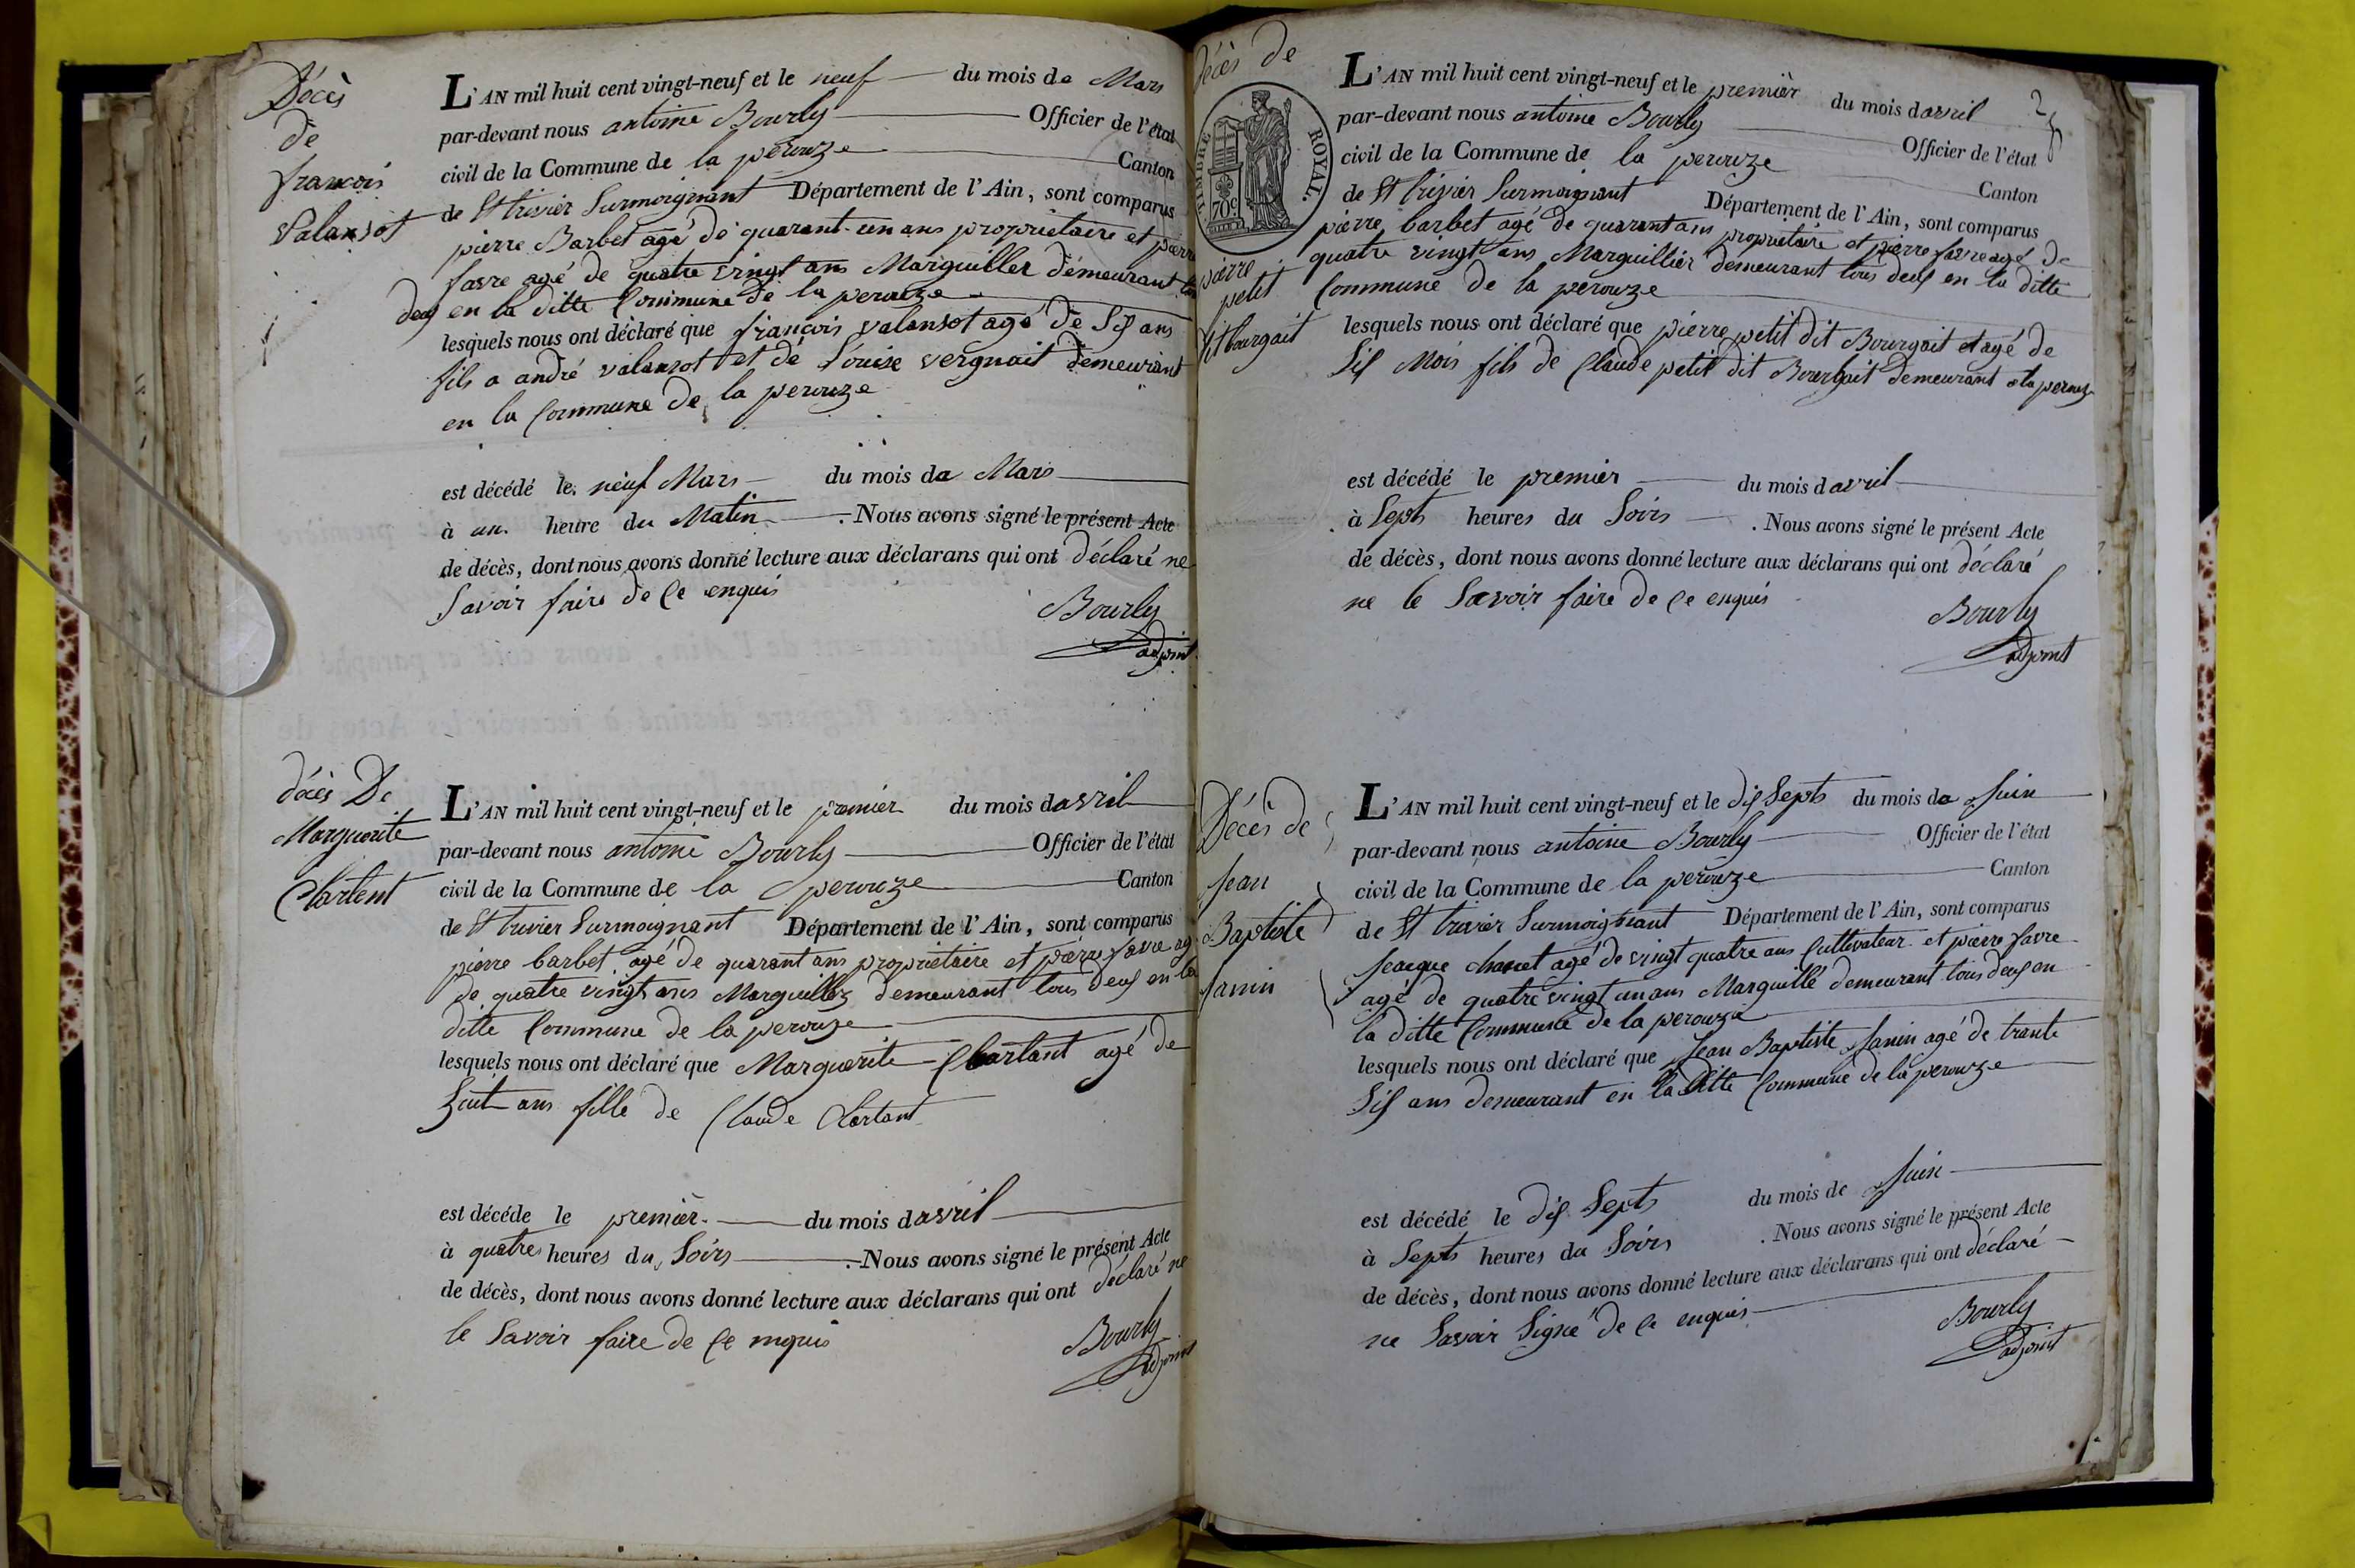 Décès
de
francois
Valansot
L'AN mil huit cent vingt-neuf et le neuf du mois de Mars
par-devant nous antoine Bourly Officier de l'état
civil de la Commune de la perouze Canton
de St trivier Surmoignant Département de l'Ain, sont comparus
pierre Barbet agé de quarant-un ans propriétaire et pierre
favre agé de quatre vingt ans Marguiller demeurant tous
deux en la ditte Commune de la perouze
lesquels nous ont déclaré que françois valansot agé de Six ans
fils a andré valansot et de Louise vergnait demeurant
en la Commune de la perouze
est décédé le neuf Mars du mois de Mars
à un heure du Matin. Nous avons signé le présent Acte
de décès, dont nous avons donné lecture aux déclarans qui ont déclaré ne
Savoir faire de Ce enquis
Bourly
adjoint
décès De
Marguerite
Chartent
L'AN mil huit cent vingt-neuf et le premier du mois d'avril
par-devant nous antoine Bourly Officier de l'état
civil de la Commune de la perouze Canton
de St trivier Surmoignant Département de l'Ain, sont comparus
pierre barbet agé de quarant ans propriétaire et pierre favre agé
de quatre vingt ans Marguiller demeurant tous deux en la
ditte Commune de la perouze
lesquels nous ont déclaré que Marguerite Chartant agé de
huit ans fille de Claude Chartant
est décéde le premier du mois d'avril
à quatres heures du Soirs. Nous avons signé le présent Acte
de décès, dont nous avons donné lecture aux déclarans qui ont déclaré ne
le Savoir faire de Ce enquis
Bourly
adjoint
décès de
TIMBRE ROYAL.
70c
pierre
petit
dit bourgait
2
L'AN mil huit cent vingt-neuf et le premier du mois d'avril
par-devant nous antoine Bourly Officier de l'état
civil de la Commune de la perouze Canton
de St trivier Surmoignant Département de l'Ain, sont comparus
pierre barbet agé de quarant ans propriétaire et pierre favre agé de
quatre vingt ans Marguillier demeurant tous deux en la ditte
Commune de la perouze
lesquels nous ont déclaré que pierre petit dit Bourgait et agé de
Six Mois fils de Claude petit dit Bourgait demeurant a la perouze
est décédé le premier du mois d'avril
à Septs heures du Soirs. Nous avons signé le présent Acte
de décès, dont nous avons donné lecture aux déclarans qui ont déclaré
ne le Savoir faire de Ce enquis
Bourly
adjoint
Décès de
Jean
Baptiste
Janin
L'AN mil huit cent vingt-neuf et le dix Septs du mois de Juin
par-devant nous antoine Bourly Officier de l'état
civil de la Commune de la perouze Canton
de St trivier Surmoignant Département de l'Ain, sont comparus
Jeacque chanet agé de vingt quatre ans Cultivateur et pierre favre
agé de quatre vingt un ans Marguillé demeurant tous deux en
la ditte Commune de la perouze
lesquels nous ont déclaré que Jean Baptiste Janin agé de trante
Six ans demeurant en la ditte Commune de la perouze
est décédé le dix Septs du mois de Juin
à Septs heures du Soirs. Nous avons signé le présent Acte
de décès, dont nous avons donné lecture aux déclarans qui ont déclaré
ne Savoir Signé de Ce enquis
Bourly
adjoint